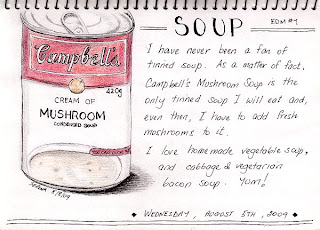 SOUP
EDM #1
Campbell's
420g
CREAM OF
MUSHROOM
CONDENSED SOUP
I have never been a fan of
tinned soup. As a matter of fact,
Campbell's Mushroom Soup is the
only tinned soup I will eat and,
even then, I have to add fresh
mushrooms to it.
I love homemade vegetable soup,
and cabbage & vegetarian
bacon soup. Yum!
WEDNESDAY, AUGUST 5TH, 2009